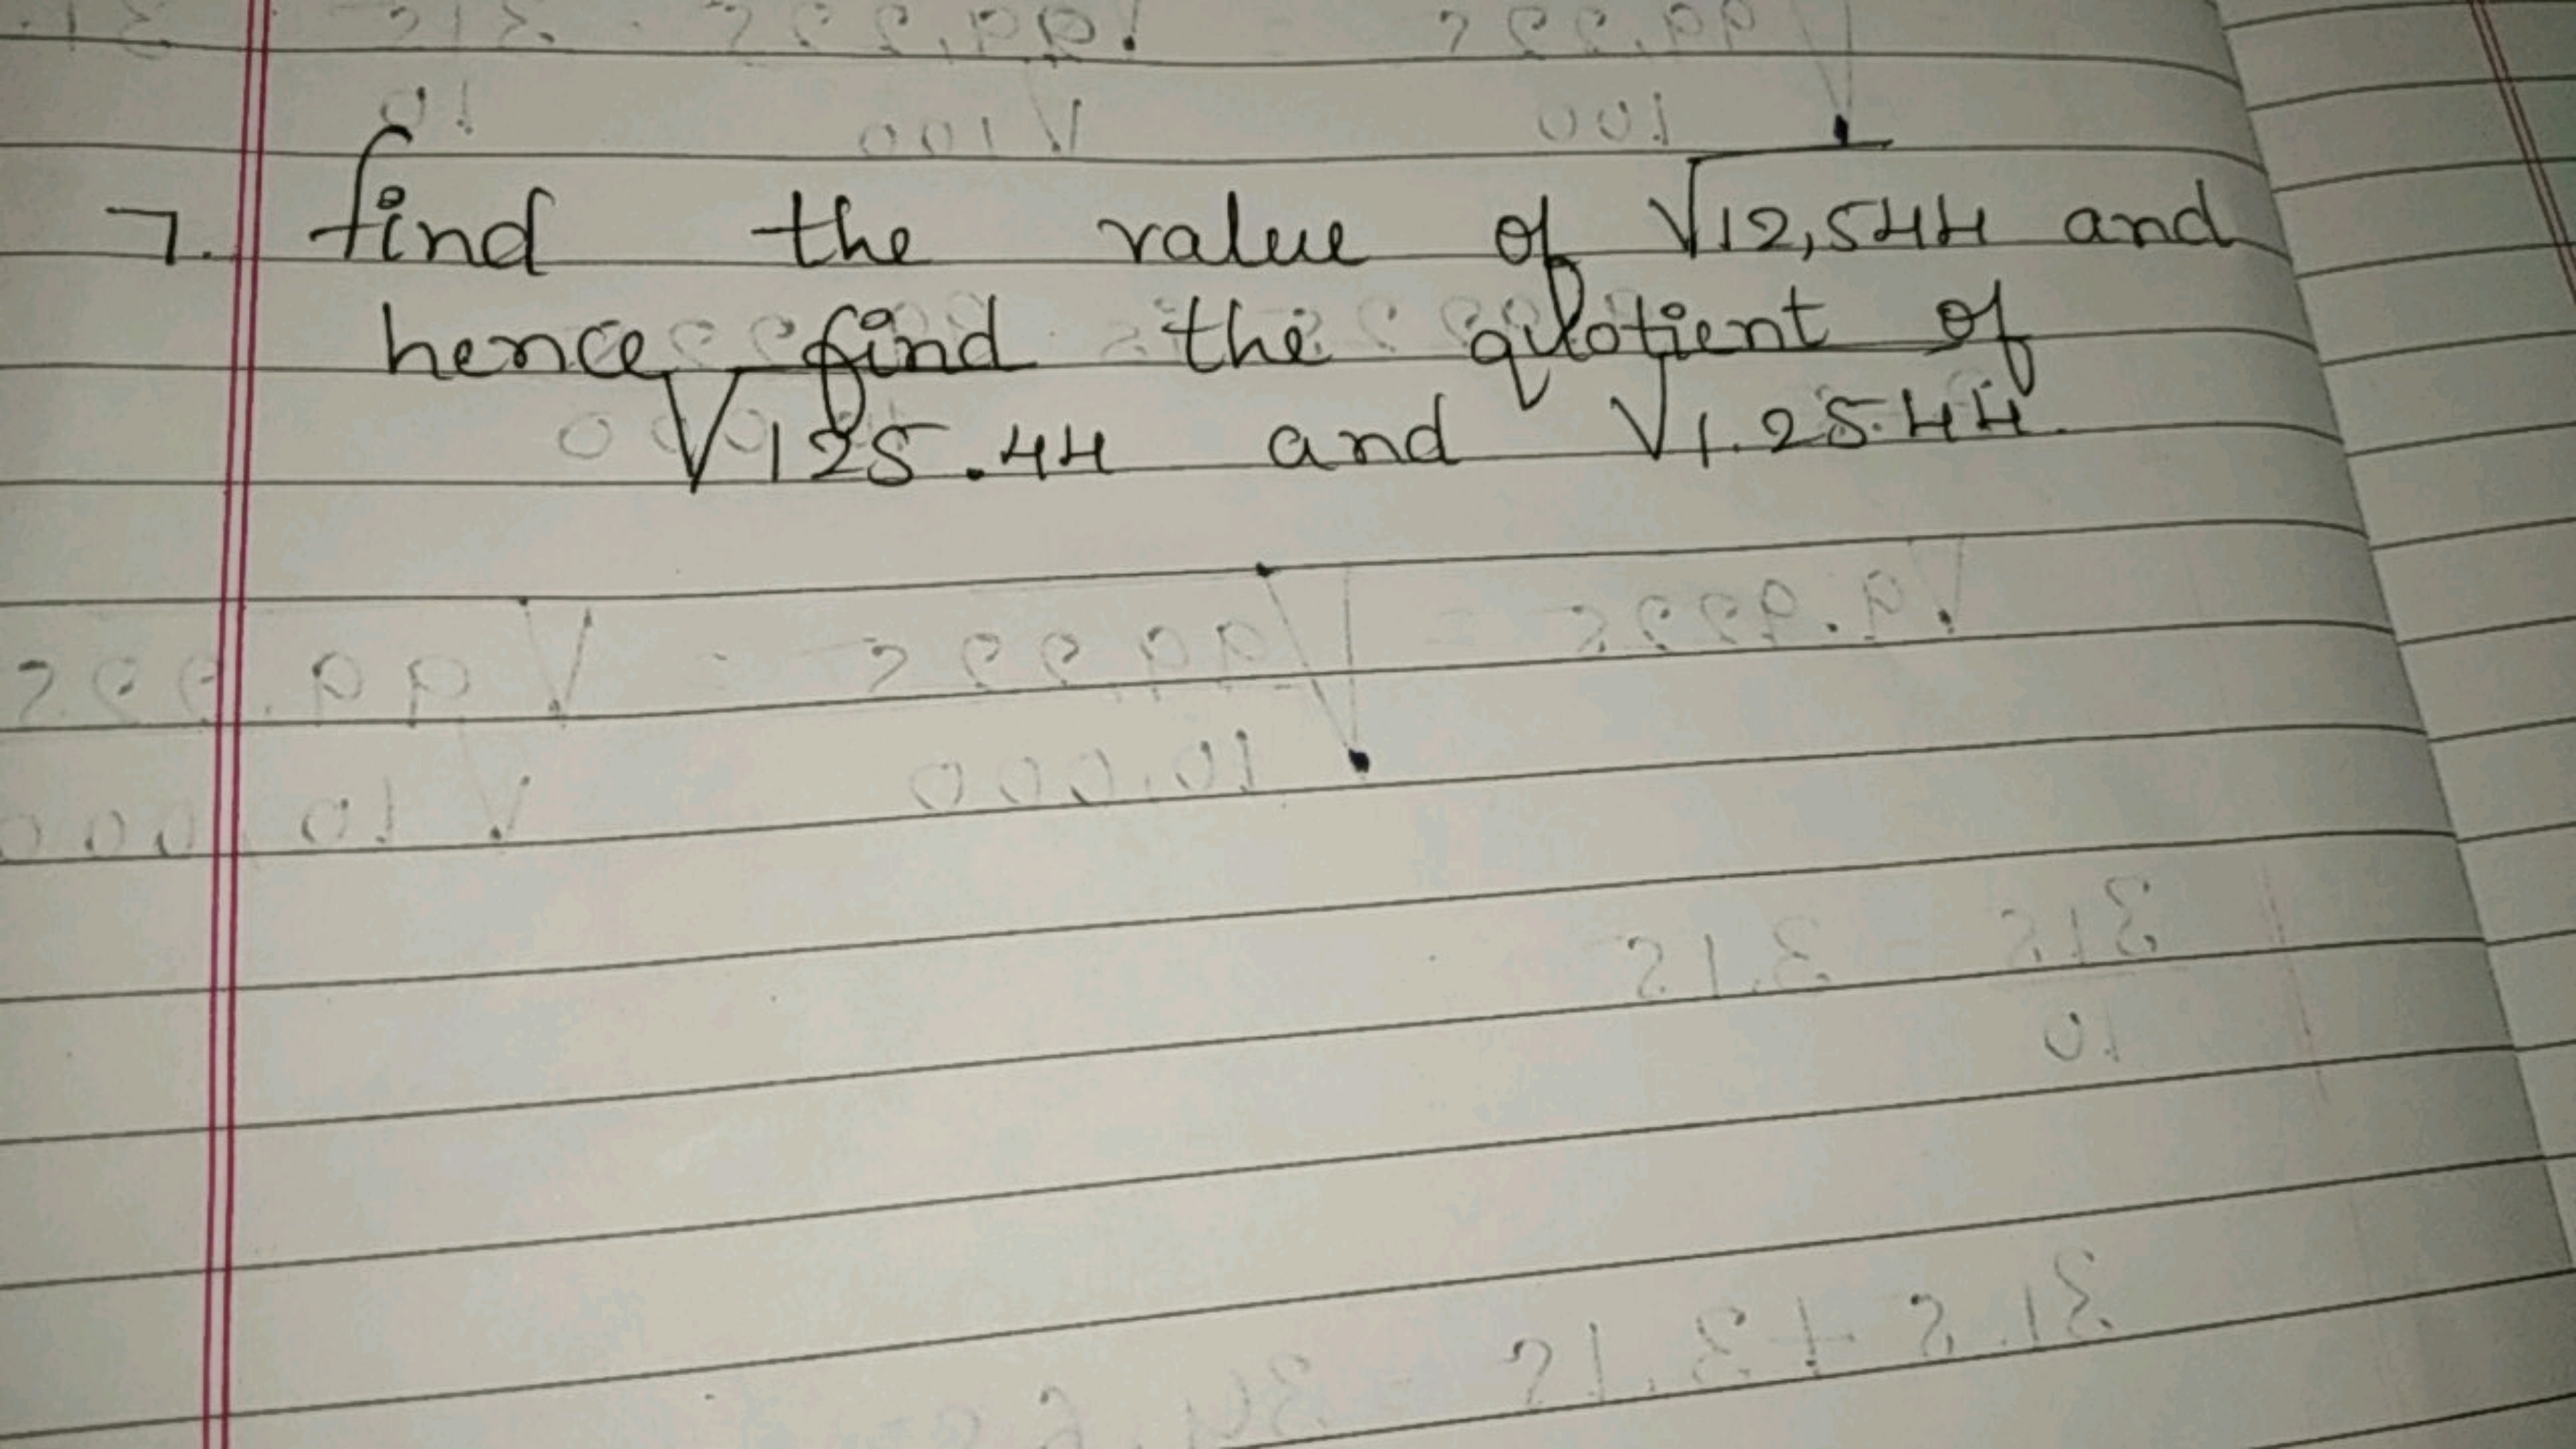 7. find the value of √12,544 and
hence find the quotient of
√125.44 and √1.2544.